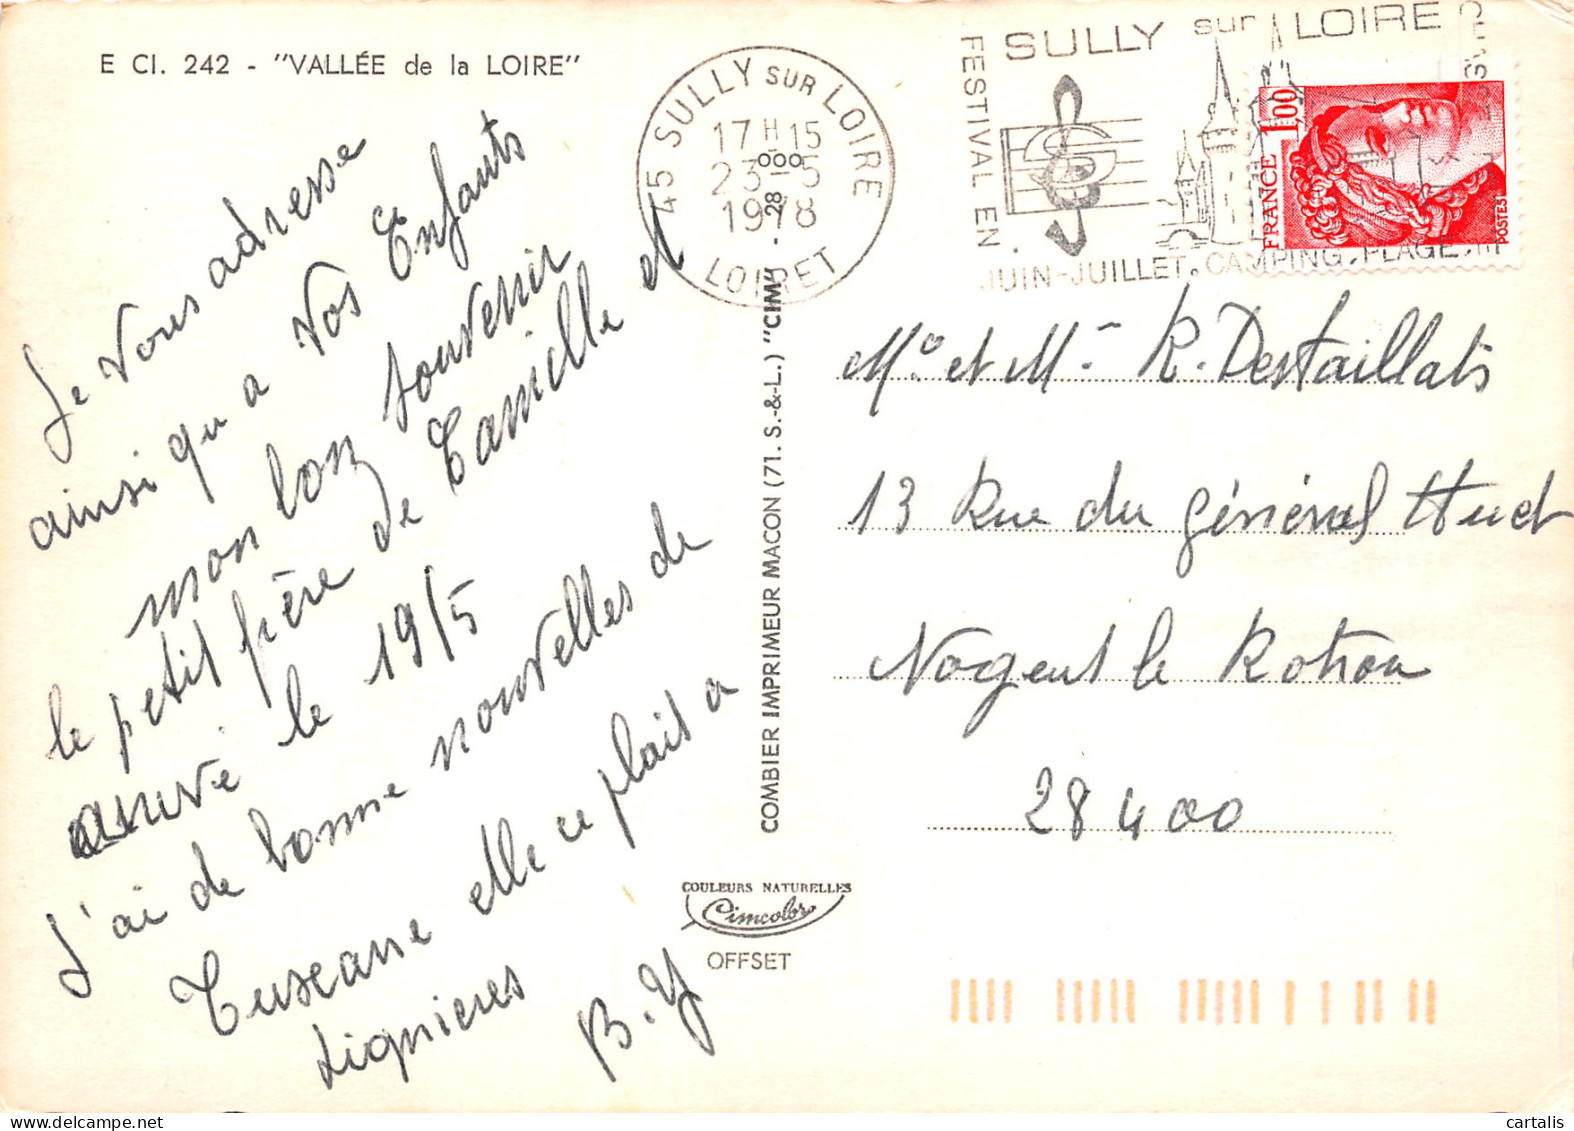 E CI. 242 - "VALLÉE de la LOIRE"
Je vous adresse
ainsi qu a vos Enfants
mon bon souvenir
le petit frère de Camille et
arrivé le 19/5
J'ai de bonne nouvelles de
elle ce plait a
Lignieres
B.Y
COMBIER IMPRIMEUR MACON (71. S.-&-L.) "CIM"
COULEURS NATURELLES
Cimcolor
OFFSET
45 SULLY SUR LOIRE
17 H 15
23-5
1978
LOIRET
28
SULLY sur LOIRE
FESTIVAL EN
JUIN-JUILLET. CAMPING, PLAGE,
FRANCE 1,00
POSTES
Mr et Mme R. Destaillats
13 Rue du général Huet
Nogent le Rotrou
28400
cartalis
delcampe.net